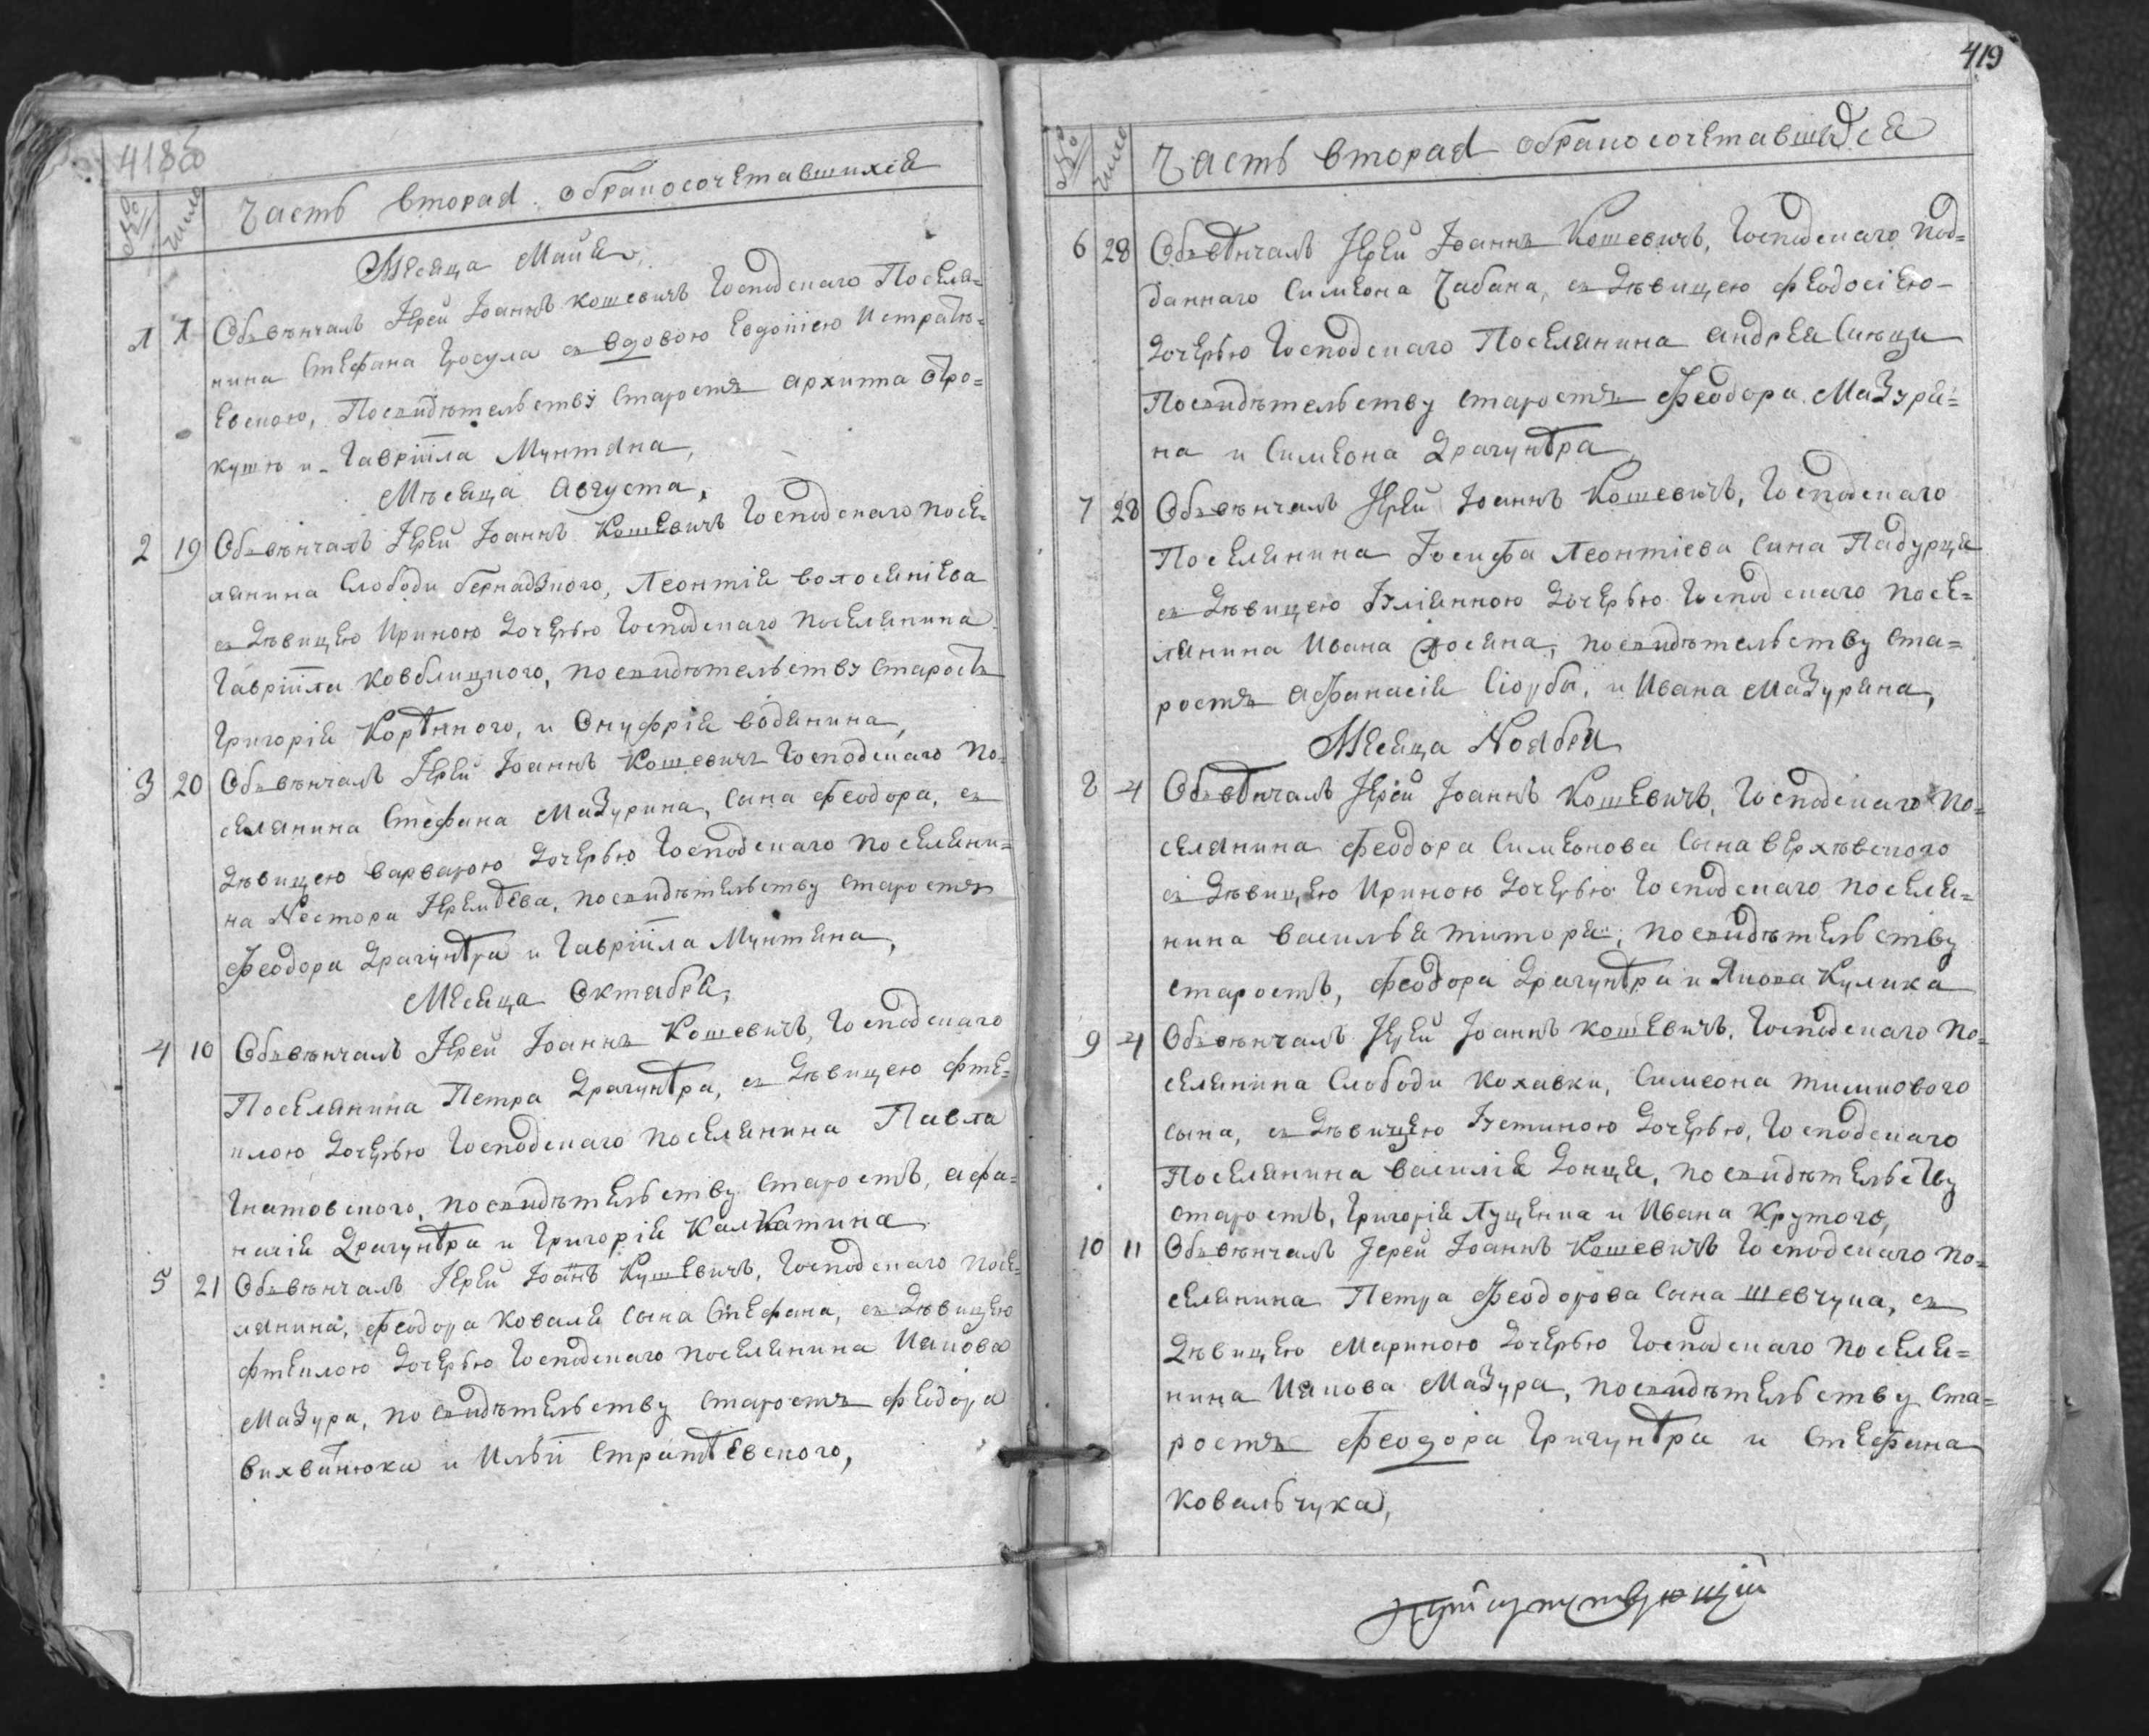 418об
№ число Часть вторая обракосочетавшихся
Месяца Майя,
1 1 Объвѣнчалъ Іерей Іоаннъ Кошевичъ Господскаго Поселя=
нина Стефана Цосула съ вдовою Евдокіею Истратѣ=
евскою, Посвидѣтельству Старостъ Архипа Про=
кушѣ и Гавріила Мунтяна,
Мѣсяца Августа,
2 19 Объвѣнчалъ Іерей Іоаннъ Кошевичъ Господскаго посе=
лянина Слободи Бернадзкого, Леонтія Волосянієва
съ Дѣвицею Ириною Дочерью Господскаго Поселянина
Гавріила Ковблицкого, посвидѣтельству Старостъ
Григорія Кортѣного, и Онуфрія Водянина,
3 20 Объвѣнчалъ Іерей Іоаннъ Кошевичъ Господскаго по=
селянина Стефана Мазурина, Сына Феодора, съ
Дѣвицею Варварою Дочерью Господскаго поселяни=
на Нестора Іеремѣева, посвидѣтельству старостъ
Феодора Драгунтра и Гавріила Мунтяна,
Месяца Октября,
4 10 Объвѣнчалъ Іерей Іоаннъ Кошевичъ, Господскаго
Поселянина Петра Драгунтра, съ Дѣвицею Фте=
клою Дочерью Господскаго поселянина Павла
Гнатовского, посвидѣтельству Старостъ, Афа=
насія Драгунтра и Григорія Калкатина
5 21 Объвѣнчалъ Іерей Іоаннъ Кушевичъ, Господскаго посе=
лянина, Феодора Коваля сына Стефана, съ Дѣвицею
Фтеклою Дочерью Господскаго поселянина Иякова
Мазура, посвидѣтельству Старостъ Феодора
Вихватнюка и Ильи Стратѣевского,
419
№ число Часть вторая обракосочетавшихся
6 28 Объвѣнчалъ Іерей Іоаннъ Кошевичъ, Господскаго под=
даннаго Симеона Чабана, съ Дѣвицею Феодосіею
дочерью Господскаго Поселянина Андрея Синци
Посвидѣтельству старостъ Феодора Мазуря=
на и Симеона Драгунтра
7 28 Объвѣнчалъ Іерей Іоаннъ Кошевичъ, Господскаго
Поселянина Іосифа Леонтіева сына Падурця
съ Дѣвицею Іулианною Дочерью Господскаго посе=
лянина Ивана Росяна, посвидѣтельству Ста=
ростъ Афанасія Сіорбы, и Ивана Мазуряна,
Месяца Ноября
8 4 Объвѣнчалъ Іерей Іоаннъ Кошевичъ, Господскаго По=
селянина Феодора Симеонова Сына Верхѣвского
съ Дѣвицею Ириною Дочерью Господскаго поселя=
нина Василья Титоря, посвидѣтельству
старостъ, Феодора Драгунтра и Якова Кулика
9 4 Объвѣнчалъ Іерей Іоаннъ Кошевичъ, Господскаго По=
селянина Слободи Кохавки, Симеона Тимкового
сына, съ Дѣвицею Іустиною Дочерью, Господскаго
Поселянина Василія Донця, посвидѣтельству
старостъ, Григорія Луценка и Ивана Крутого,
10 11 Объвѣнчалъ Іерей Іоаннъ Кошевичъ Господскаго по=
селянина Петра Феодорова Сына Шевчука, съ
Дѣвицею Мариною Дочерью Господскаго поселя=
нина Иякова Мазура, посвидѣтельству Ста=
ростъ Феодора Григунтра и Стефана
Ковальчука,